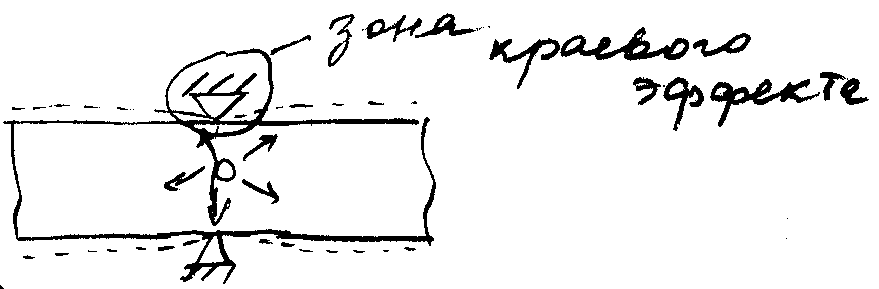 зона
краевого
эффекте